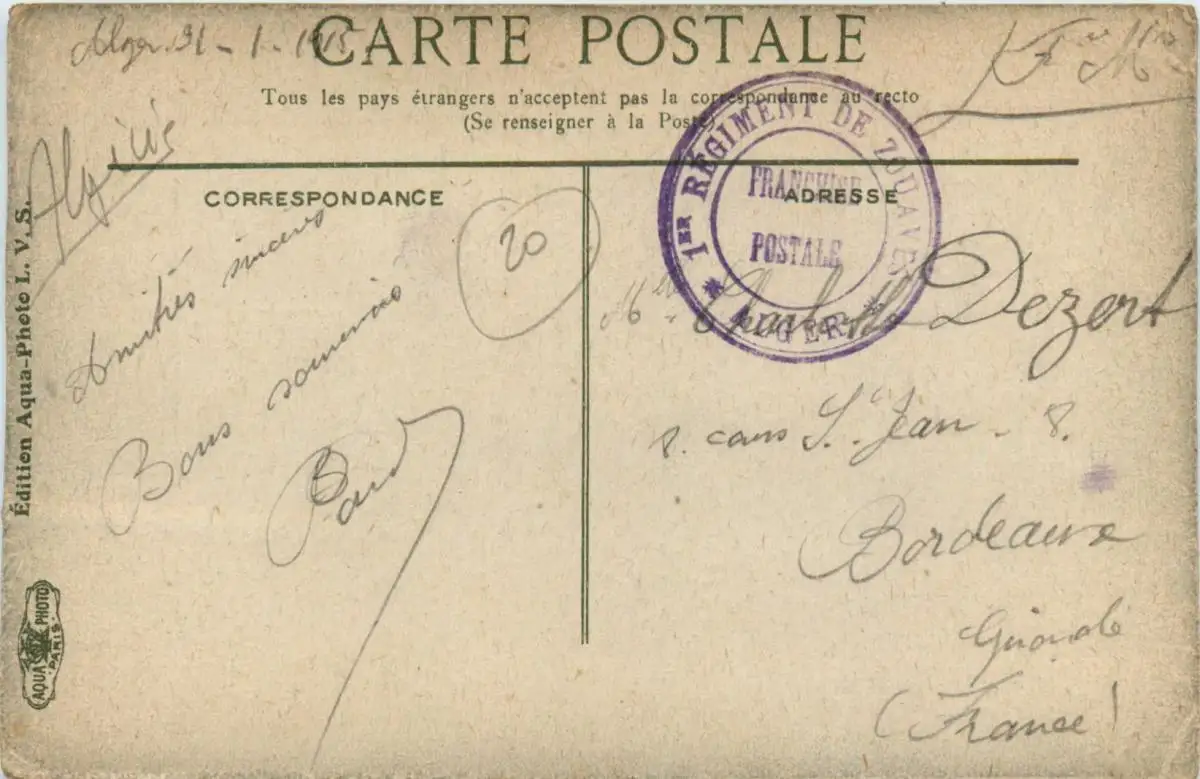 Alger. 31 - 1 - 1915
CARTE POSTALE
F. M.
Tous les pays étrangers n'acceptent pas la correspondance au recto
(Se renseigner à la Poste)
CORRESPONDANCE
ADRESSE
1ER RÉGIMENT DE ZOUAVES
FRANCHISE
POSTALE
* ALGER *
20
Amitiés sincères
Bons souvenirs
Mlle Charlotte Dezert
8. cours St. Jean - 8.
Bordeaux
Gironde
(France)
Édition Aqua-Photo L. V. S.
AQUA PHOTO
PARIS